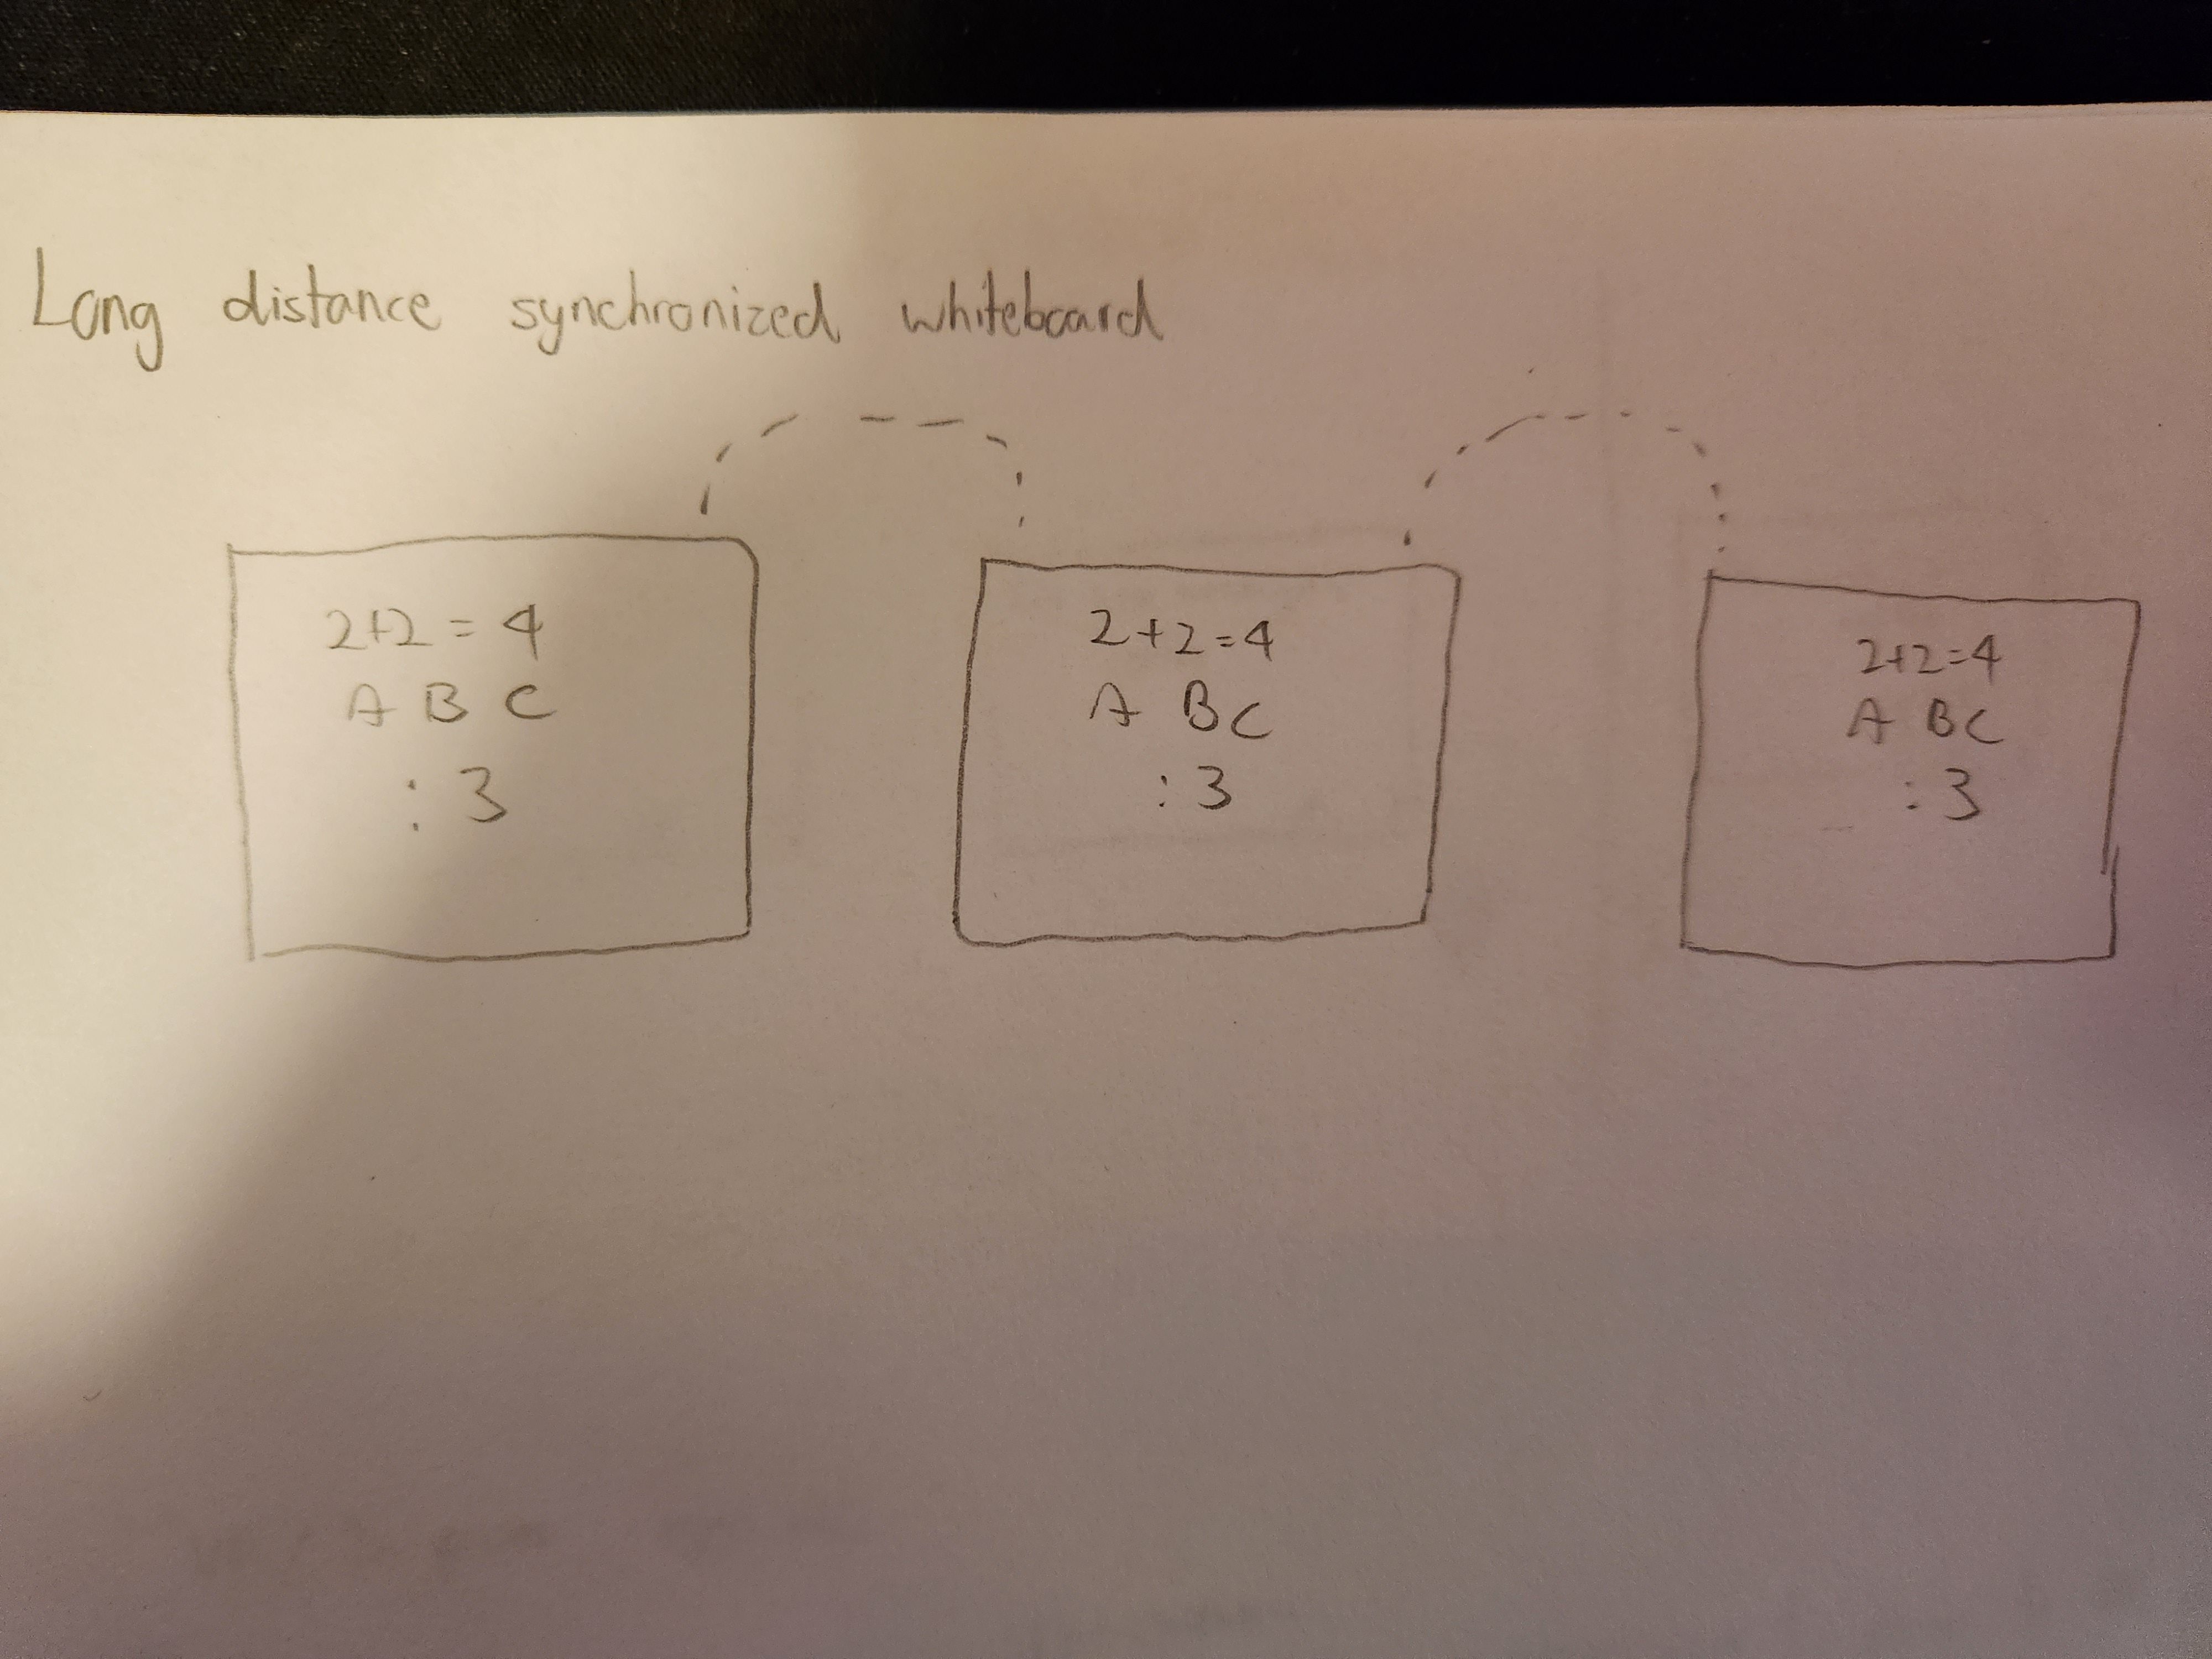 Long distance synchronized whiteboard
2+2=4
A B C
:3
2+2=4
A B C
:3
2+2=4
A B C
:3